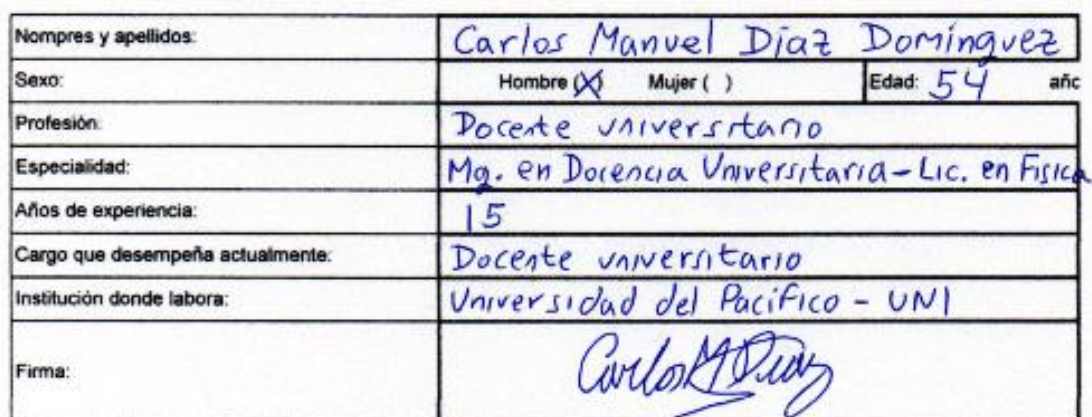 Nompres y apellidos: Carlos Manuel Díaz Domínguez
Sexo: Hombre (X) Mujer ( ) Edad: 54 añc
Profesión: Docente universitario
Especialidad: Mg. en Docencia Universitaria - Lic. en Física
Años de experiencia: 15
Cargo que desempeña actualmente: Docente universitario
Institución donde labora: Universidad del Pacífico - UNI
Firma: Carlos M Díaz